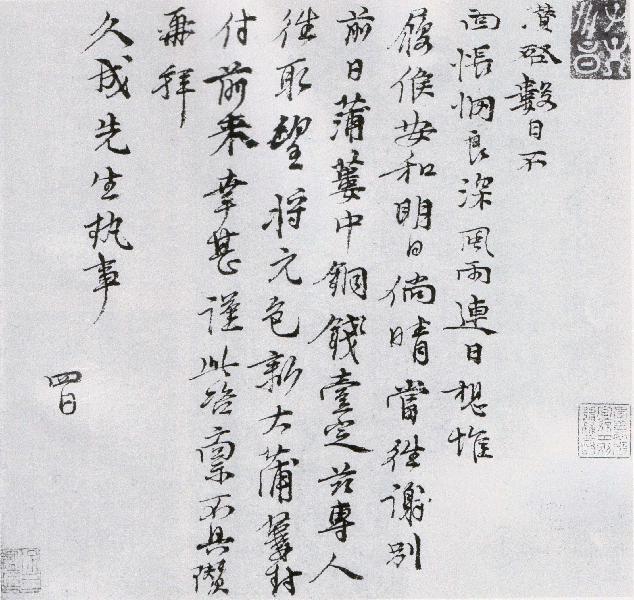 瓚啓數日不
面悵惘良深風雨連日想惟
履候安和明日倘晴當往謝別
前日蒲蔞中銅錢壹定茲專人
往取望將元色新大蒲蔞封
付前来幸甚謹此咨稟不具瓚
再拜
久成先生執事
四日